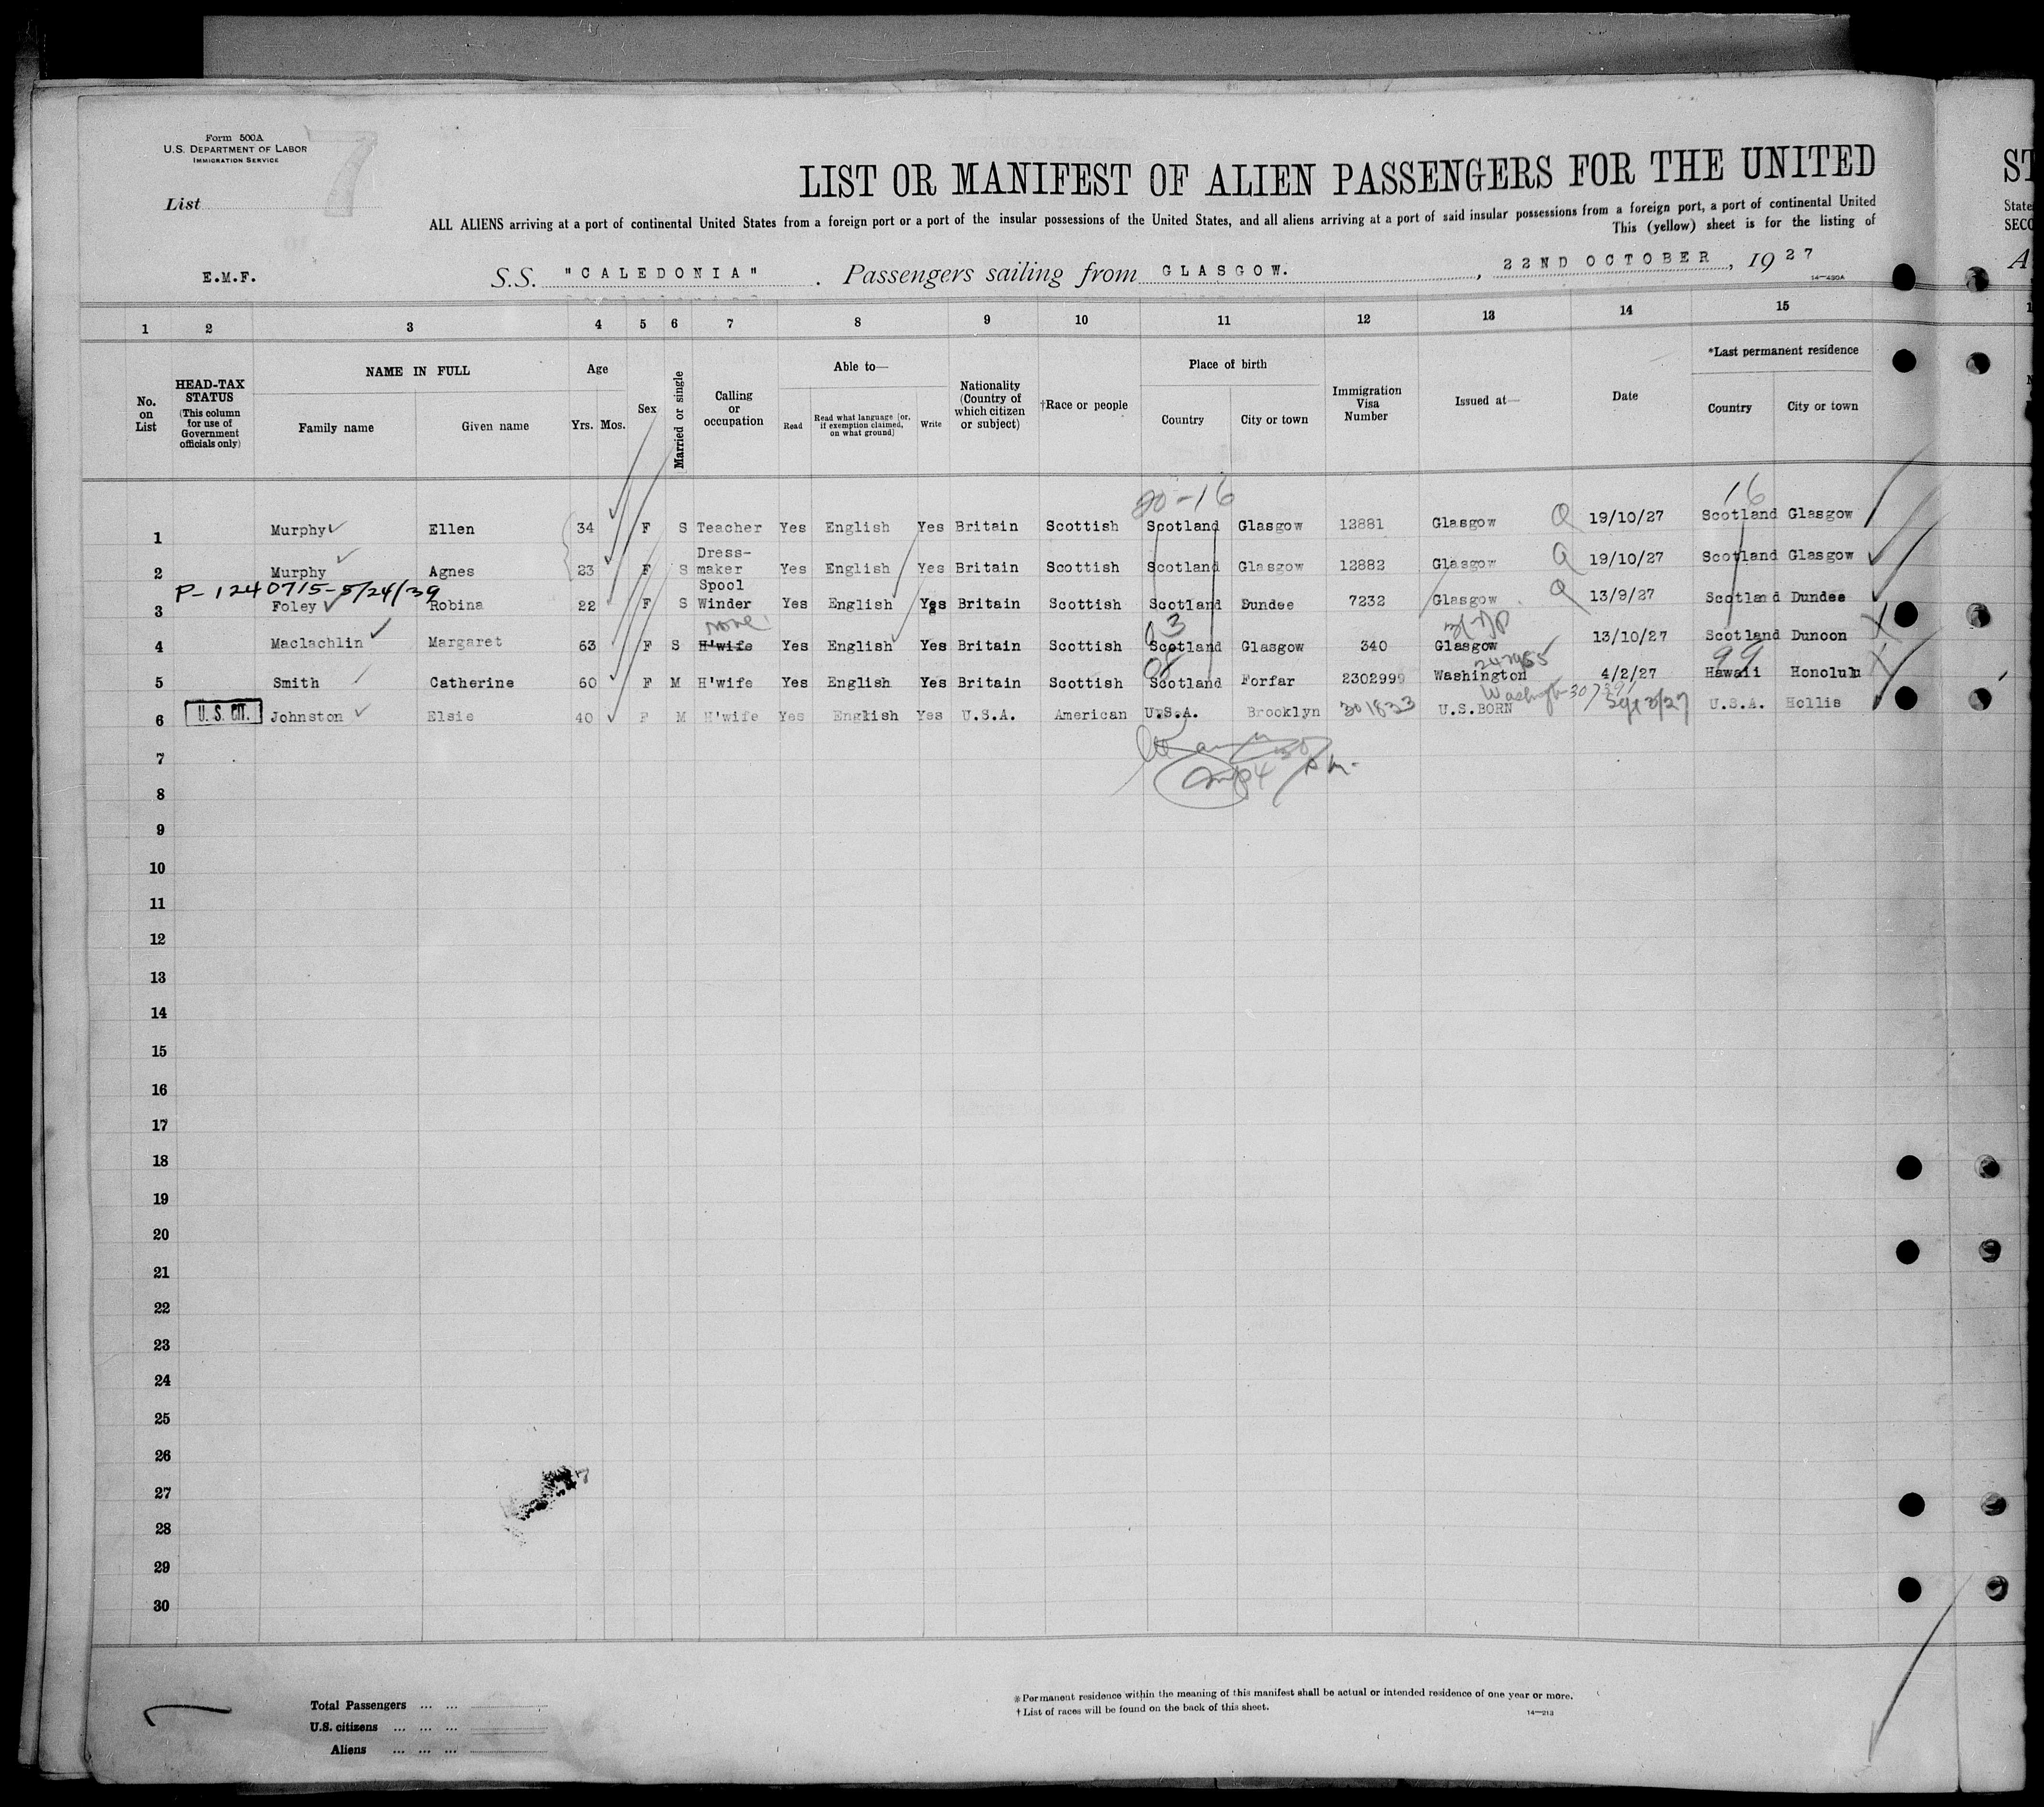 Form 500A
U.S. DEPARTMENT OF LABOR
IMMIGRATION SERVICE
7
List
LIST OR MANIFEST OF ALIEN PASSENGERS FOR THE UNITED
ST
ALL ALIENS arriving at a port of continental United States from a foreign port or a port of the insular possessions of the United States, and all aliens arriving at a port of said insular possessions from a foreign port, a port of continental United
State
This (yellow) sheet is for the listing of
SECO
E.M.F.
S.S. "CALEDONIA". Passengers sailing from GLASGOW. , 22ND OCTOBER, 1927
A
14—430A
1 2 3 4 5 6 7 8 9 10 11 12 13 14 15
No. on List
HEAD-TAX STATUS (This column for use of Government officials only)
NAME IN FULL
Family name Given name
Age
Yrs. Mos.
Sex
Married or single
Calling or occupation
Able to—
Read
Read what language [or, if exemption claimed, on what ground]
Write
Nationality (Country of which citizen or subject)
†Race or people
Place of birth
Country City or town
Immigration Visa Number
Issued at—
Date
*Last permanent residence
Country City or town
20-16
16
1 Murphy Ellen 34 F S Teacher Yes English Yes Britain Scottish Scotland Glasgow 12881 Glasgow 19/10/27 Scotland Glasgow
2 Murphy Agnes 23 F S Dress-maker Yes English Yes Britain Scottish Scotland Glasgow 12882 Glasgow 19/10/27 Scotland Glasgow
P-1240715-5/24/39
3 Foley Robina 22 F S Spool Winder Yes English Yes Britain Scottish Scotland Dundee 7232 Glasgow 13/9/27 Scotland Dundee
none
4 Maclachlin Margaret 63 F S H'wife Yes English Yes Britain Scottish Scotland Glasgow 340 Glasgow 13/10/27 Scotland Dunoon
99
5 Smith Catherine 60 F M H'wife Yes English Yes Britain Scottish Scotland Forfar 2302999 Washington 4/2/27 Hawaii Honolulu
6 U.S. CIT. Johnston Elsie 40 F M H'wife Yes English Yes U.S.A. American U.S.A. Brooklyn 301833 U.S.BORN Sept 3/27 U.S.A. Hollis
7
8
9
10
11
12
13
14
15
16
17
18
19
20
21
22
23
24
25
26
27
28
29
30
Total Passengers ... ...
U.S. citizens ... ... ...
Aliens ... ... ...
*Permanent residence within the meaning of this manifest shall be actual or intended residence of one year or more.
† List of races will be found on the back of this sheet.
14—213